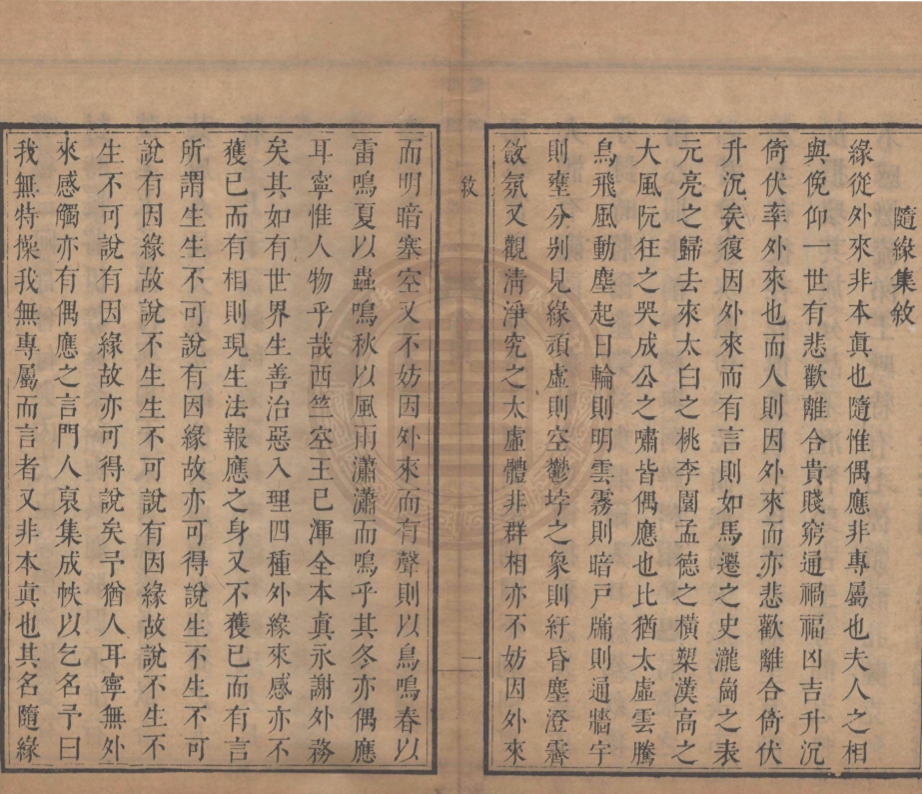 隨緣集敘
緣從外來非本眞也隨惟偶應非專屬也夫人之相
與俛仰一世有悲歡離合貴賤窮通禍福凶吉升沉
倚伏牽外來也而人則因外來而亦悲歡離合倚伏
升沉矣復因外來而有言則如馬遷之史瀧崗之表
元亮之歸去來太白之桃李園孟德之橫槊漢高之
大風阮狂之哭成公之嘯皆偶應也比猶太虛雲騰
鳥飛風動塵起日輪則明雲霧則暗戸牖則通牆宇
則壅分别見緣頑虛則空鬱㘿之象則紆昏塵澄霽
斂氛又觀清淨究之太虛體非群相亦不妨因外來
敘
一
而明暗塞空又不妨因外來而有聲則以鳥鳴春以
雷鳴夏以蟲鳴秋以風雨瀟瀟而鳴乎其冬亦偶應
耳寧惟人物乎哉西竺空王已渾全本眞永謝外務
矣其如有世界生善治惡入理四種外緣來感亦不
獲已而有相則現生法報應之身又不獲已而有言
所謂生生不可說有因緣故亦可得說生不生不可
說有因緣故說不生生不可說有因緣故說不生不
生不可說有因緣故亦可得說矣予猶人耳寧無外
來感觸亦有偶應之言門人裒集成帙以乞名予曰
我無特操我無專屬而言者又非本眞也其名隨緣